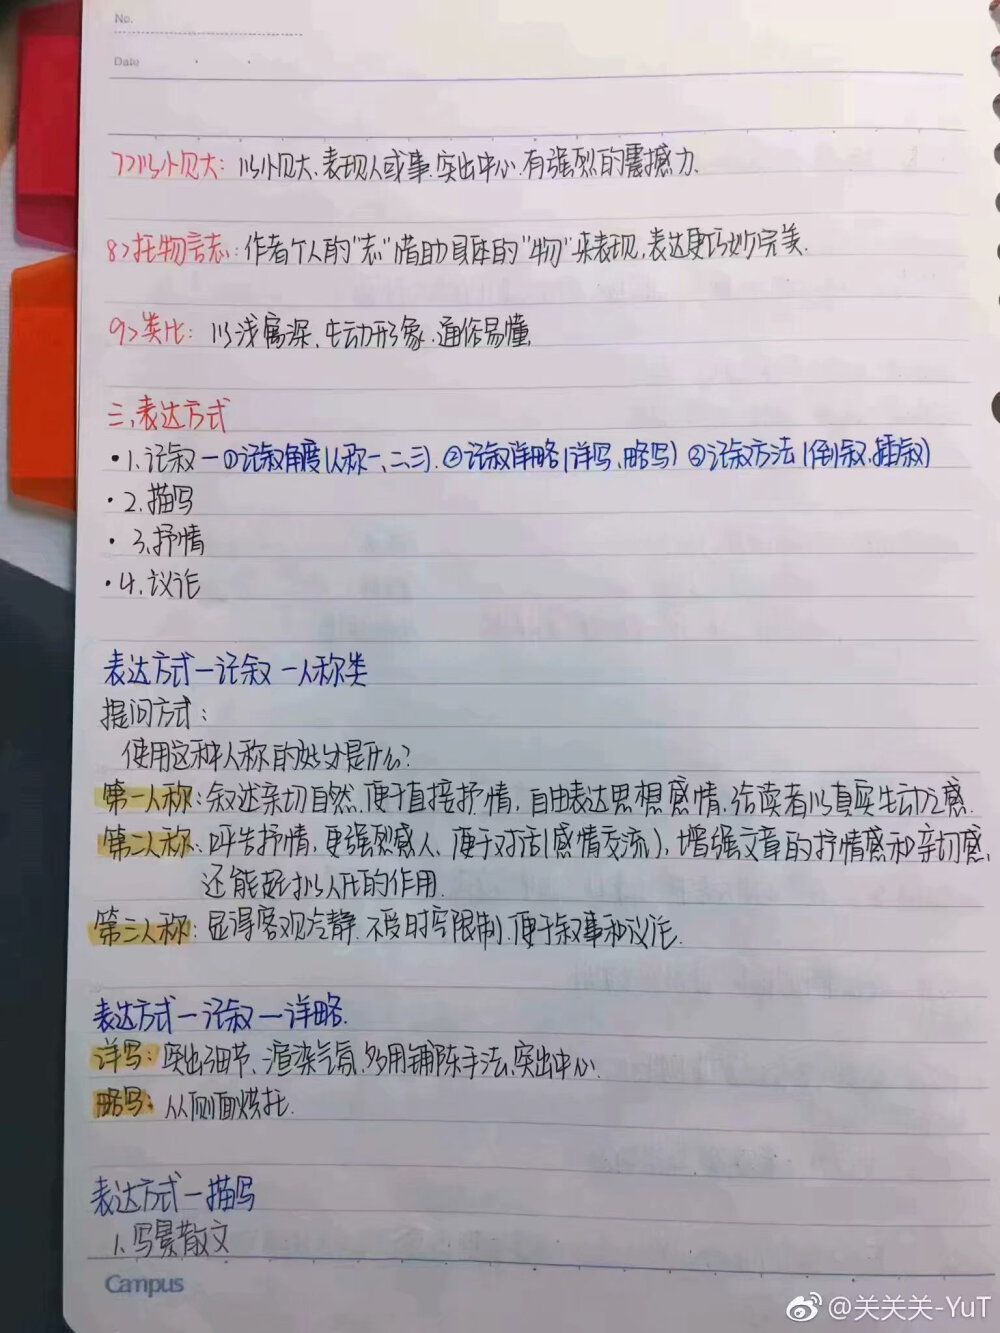 No.
Date
7>以小见大：以小见大、表现人或事.突出中心.有强烈的震撼力.
8>托物言志：作者个人的"志"借助具体的"物"来表现,表达更巧妙完美.
9>类比：以浅寓深、生动形象.通俗易懂.
三.表达方式
·1.记叙—①记叙角度(人称一、二、三).②记叙详略(详写、略写) ③记叙方法(倒叙、插叙)
·2.描写
·3.抒情
·4.议论
表达方式—记叙—人称类
提问方式：
使用这种人称的好处是什么?
第一人称：叙述亲切自然.便于直接抒情.自由表达思想感情.给读者以真实生动之感.
第二人称：呼告抒情,更强烈感人、便于对话(感情交流),增强文章的抒情感和亲切感,
还能起拟人化的作用.
第三人称：显得客观冷静.不受时空限制.便于叙事和议论.
表达方式—记叙—详略.
详写：突出细节、渲染气氛,多用铺陈手法,突出中心.
略写：从侧面烘托.
表达方式—描写
1.写景散文
Campus
@关关关-YuT